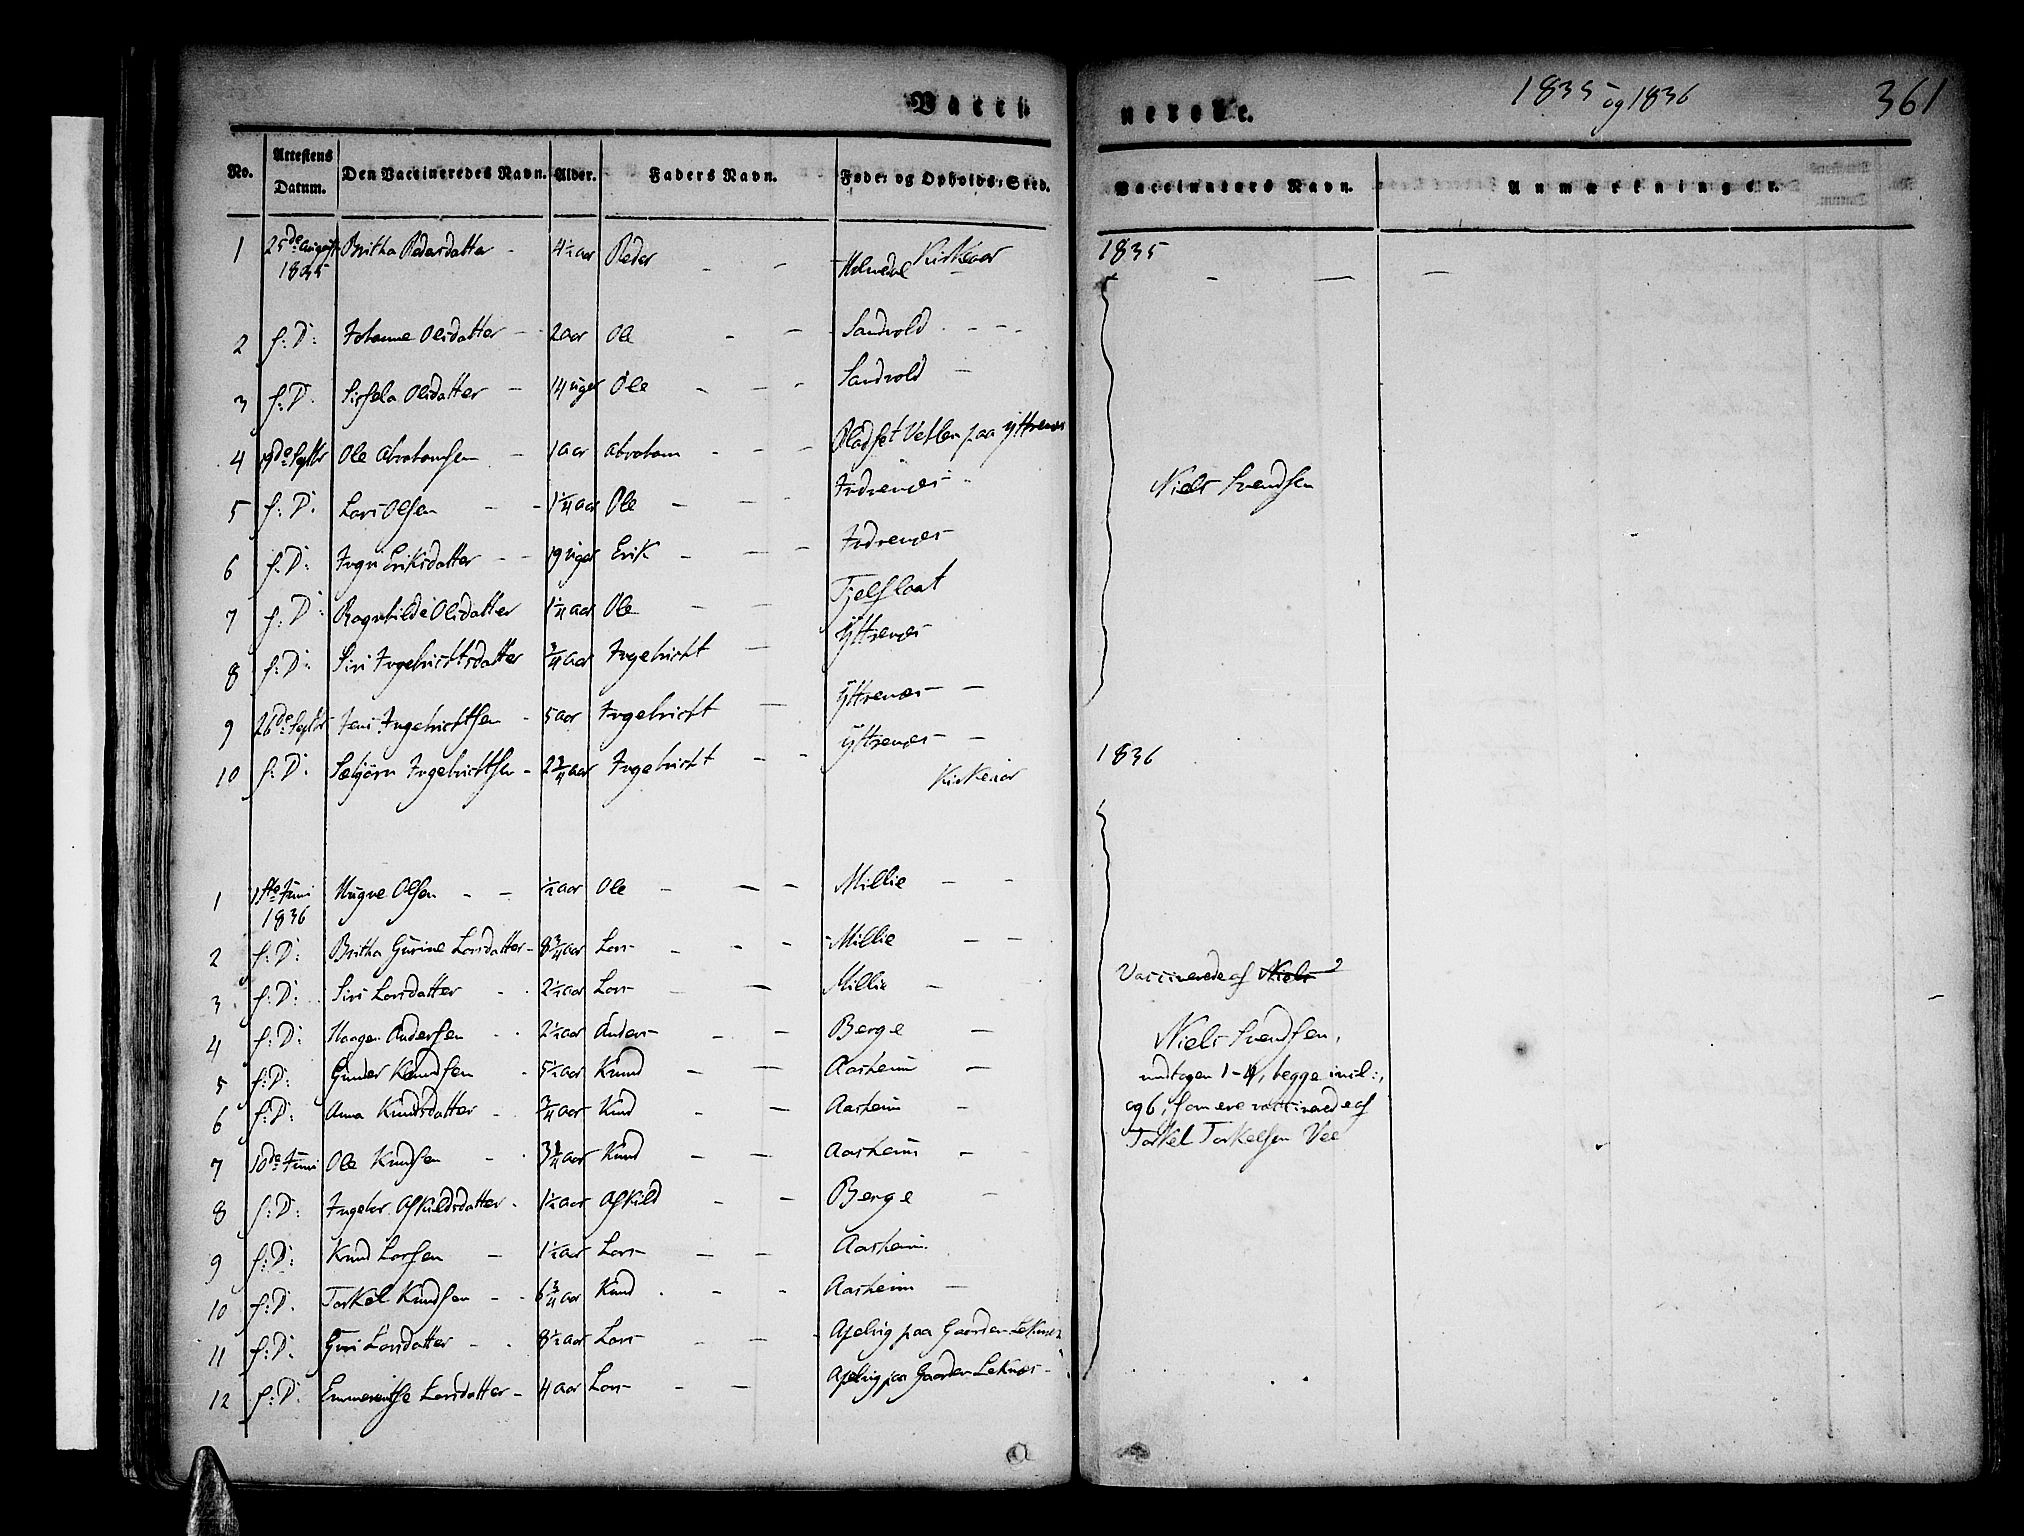 Vacci nerede. 1835 og 1836 361
No. Attestens Datum. Den Vaccineredes Navn. Alder. Faders Navn. Føde- og Opholds-Sted. Vaccinators Navn. Anmærkninger.
1 25de August 1835 Britha Pedersdatter - 4½ aar Peder - - Holmedal Kirkeaar 1835
2 s: D: Johanne Olsdatter - 2 aar Ole - - Sandvold - - -
3 s: D: Sissela Olsdatter - 14 uger Ole - - - Sandvold -
4 19de Septbr Ole Abrahamsen - 1 aar Abraham - - - Pladset Vetlen paa Yttrenæs
5 s: D: Lars Olsen - - 1¼ aar Ole - - - Indrenæs - Niels Svendsen
6 s: D: Ingri Eriksdatter - - 19 uger Erik - - - Indrenæs
7 s: D: Ragnhilde Olsdatter 1¼ aar Ole - - Tjelflaat
8 s: D: Siri Ingebrichtsdatter ¾ aar Ingebricht - Yttrenæs
9 26de Septbr Jens Ingebrichtsen - 5 aar Ingebricht - Yttrenæs - -
10 s: D: Sæbjørn Ingebrichtsen - 2¾ aar Ingebricht - - Yttrenæs - - 1836
Kirkeaar
1 1ste Juni 1836 Mugne Olsen - - ½ aar Ole - - - Millie - -
2 s: D: Britha Gurine Larsdatter - 8¾ aar Lars - - - Millie - -
3 s: D: Siri Larsdatter - - 2½ aar Lars - - Millie - Vaccinerede af Niels
4 s: D: Haagen Andersen - - 2½ aar Anders - - - Berge - Niels Svendsen,
5 s: D: Gunder Knudsen - 5½ aar Knud - - - Aasheim - undtagen 1-4, begge incl:,
6 s: D: Anna Knudsdatter - - ¾ aar Knud - - Aasheim - og 6, som ere vaccinerede af
7 10de Juni Ole Knudsen - - 3¼ aar Knud - - Aasheim - - Torkel Torkelsen Vee
8 s: D: Ingebor Askildsdatter - 1½ aar Askild - - Berge -
9 s: D: Knud Larsen - 1½ aar Lars - - - Aasheim
10 s: D: Torkel Knudsen - - 6¾ aar Knud - - - Aasheim -
11 s: D: Guri Larsdatter - - 8½ aar Lars - - - Apelvig paa Gaarden Leknæs
12 s: D: Emmerentse Larsdatter - 4 aar Lars - - - Apelvig paa Gaarden Leknæs -